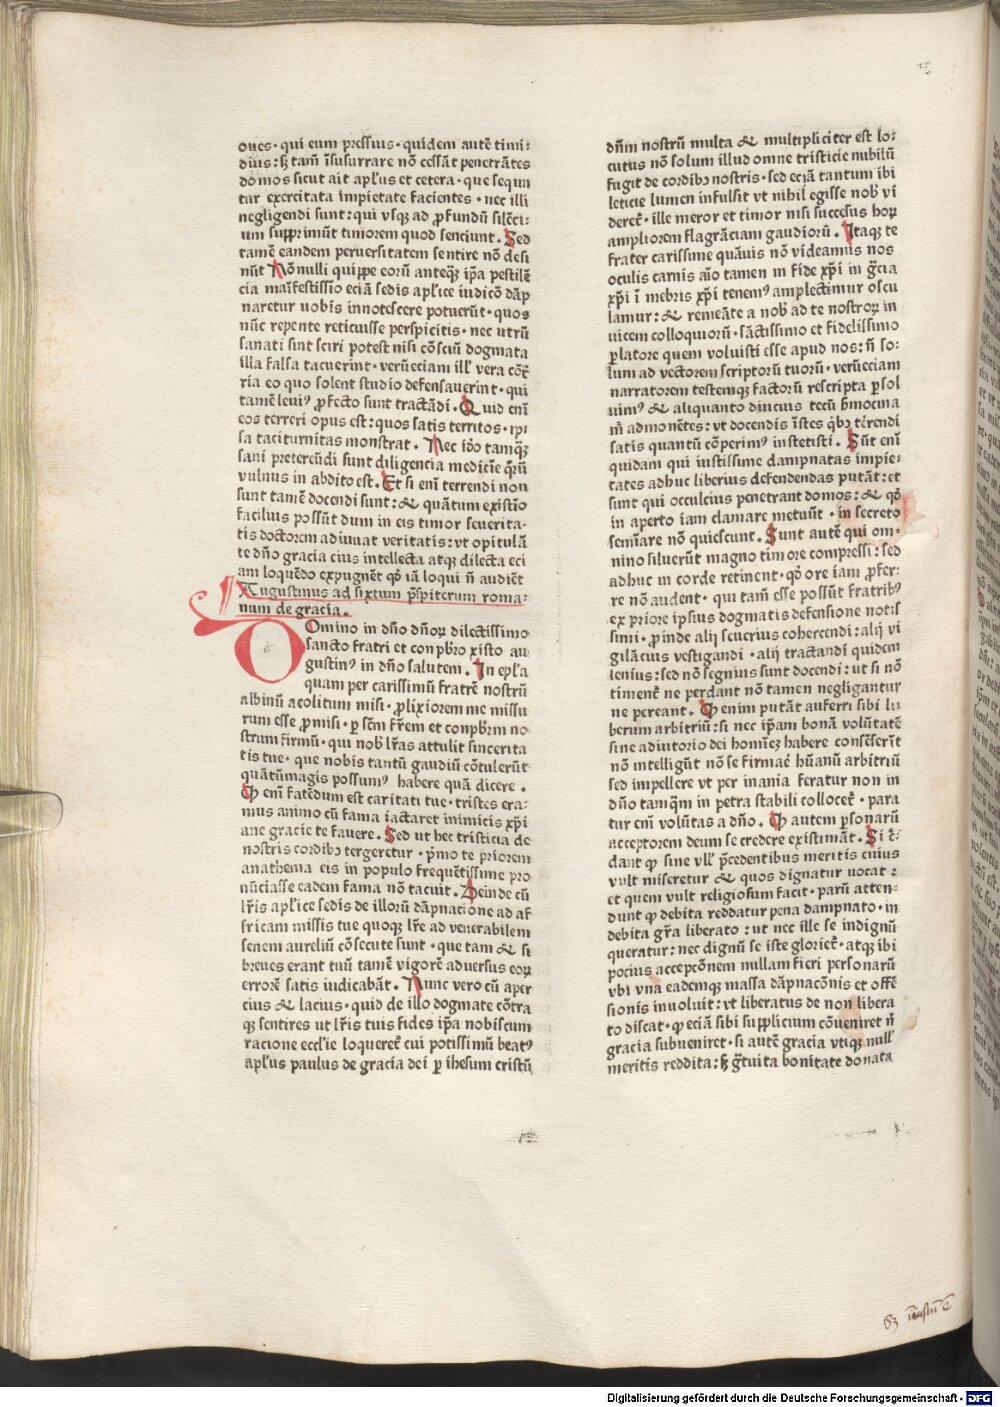 oues · qui eum pressius · quidem autē timi⸗
dius : ꝫ tam̄ īsusurrare nō cessāt penetrātes
domos sicut ait apl'us et cetera · que sequn
tur exercitata impietate facientes · nec illi
negligendi sunt : qui vsqꝫ ad ꝓfundū silēci⸗
um supprimūt timorem quod senciunt . Sed
tamē eandem peruersitatem sentire nō desi
nūt Nōnulli quippe eorū anteqꝫ ip̄a pestilē
cia maīfestissīo eciā sedis apl'ice iudicō dāp
naretur uobis innotescere potuerūt · quos
nūc repente reticuisse perspicitis · nec utrū
sanati sint sciri potest nisi cōsciū dogmata
illa falsa tacuerint · verūeciam ill' vera cōt̄
ria eo quo solent studio defensauerint · qui
tamē leuiꝰ ꝓfecto sunt tractādi . Quid enī
eos terreri opus est : quos satis territos · ip̄i
sa taciturnitas monstrat . Nec iōo tamqꝫ
sani pretereūdi sunt diligencia medicīe qꝛū
vulnus in abdito est . Et si enī terrendi non
sunt tamē docendi sunt : & quātum existīo
facilius possūt dum in eis timor seuerita⸗
tis doctorem adiuuat veritatis : vt opitulā
te dn̄o gracia eius intellecta atqꝫ dilecta eci
am loquēdo expugnēt qđ iā loqui n̄ audiēt
Augustinus ad sixtum p̄spiterum roma⸗
num de gracia .
Domino in dn̄o dn̄oꝝ dilectissimo
sancto fratri et conpbr̄o xisto au
gustinꝰ in dn̄o salutem . In epl'a
quam per carissimū fratrē nostrū
albinū acolitum misi · ꝓlixiorem me missu
rum esse ꝓmisi · ꝑ sc̄m fr̄em et conpbr̄m no
strum firmū · qui nob' lr̄as attulit sincerita
tis tue · que nobis tantū gaudiū cōtulerūt
quātūmagis possumꝰ habere quā dicere .
Q enī fatēdum est caritati tue · tristes era⸗
mus animo cū fama iactaret inimicis xp̄i
anc gracie te fauere . Sed ut hec tristicia de
nostris cordibꝫ tergeretur · pͥmo te priorem
anathema eis in populo frequētissime pro
nūciasse eadem fama nō tacuit . Deinde cū
lr̄is apl'ice sedis de illorū dāpnacione ad af
fricam missis tue quoqꝫ lr̄e ad venerabilem
senem aureliū cōsecute sunt · que tam & si
breues erant tuū tamē vigorē aduersus eoꝝ
errorē satis iudicabāt . Nunc vero cū aper
cius & lacius · quid de illo dogmate cōtra
qꝫ sentires ut lr̄is tuis fides ip̄a nobiscum
racione eccl'ie loqueret̄ cui potissimū beatꝰ
apl'us paulus de gracia dei ꝑ ihesum cristū
dn̄m nostrū multa & multipliciter est lo⸗
cutus nō solum illud omne tristicie nubilū
fugit de cordibꝫ nostris · sed eciā tantum ibi
leticie lumen infulsit vt nihil egisse nob' vi
deret̄ · ille meror et timor nisi succēsus hoꝝ
ampliorem flagrāciam gaudiorū . Itaqꝫ te
frater carissime quāuis nō videamus nos
oculis carnis aīo tamen in fide xp̄i in gr̄cia
xp̄i ī mēbris xp̄i tenemꝰ amplectimur oscu
lamur : & remeāte a nob' ad te nostroꝝ in
uicem colloquiorū · sāctissimo et fidelissimo
ꝑlatore quem voluisti esse apud nos : n̄ so⸗
lum ad vectorem scriptorū tuorū · verūeciam
narratorem testemqꝫ factorū rescripta ꝑsol
uimꝰ & aliquanto diucius tecū s̄mocina
m̄ admonētes : vt docendis īstes qͥbꝫ terrendi
satis quantū cōperimꝰ institisti . Sūt enī
quidam qui iustissime dampnatas impie⸗
tates adhuc liberius defendendas putāt : et
sunt qui occulcius penetrant domos : & qđ
in aperto iam clamare metuūt · in secreto
semīare nō quiescunt . Sunt autē qui om⸗
nino siluerūt magno timore compressi : sed
adhuc in corde retinent · qđ ore iam ꝓfer⸗
re nō audent · qui tam̄ esse possūt fratribꝰ
ex priore ipsius dogmatis defensione notis
simi · ꝓinde alij seuerius cohercendi : alij vi
gilācius vestigandi · alij tractandi quidem
lenius : sed nō segnius sunt docendi : ut si nō
timent̄ ne perdant nō tamen negligantur
ne pereant . Q enim putāt auferri sibi li
berum arbitriū : si nec ip̄am bonā volūtatē
sine adiutorio dei homīeꝫ habere consēserīt
nō intelligūt nō se firmar̄ hūanū arbitriū
sed impellere vt per inania feratur non in
dn̄o tamqm̄ in petra stabili collocet̄ · para
tur enī volūtas a dn̄o . Q autem ꝑsonarū
acceptorem deum se credere existimāt . Si c̄⸗
dant ꝙ sine vll' p̄cedentibus meritis cuius
vult miseretur & quos dignatur uocat :
et quem vult religiosum facit · parū atten⸗
dunt ꝙ debita reddatur pena dampnato · in
debita gr̄a liberato : ut nec ille se indignū
queratur : nec dignū se iste gloriet̄ · atqꝫ ibi
pocius accepcōnem nullam fieri personarū
vbi vna eademqꝫ massa dāpnacōnis et offē
sionis inuoluit : vt liberatus de non libera
to discat · ꝙ eciā sibi supplicium cōueniret n̄
gracia subueniret · si autē gracia vtiqꝫ null'
meritis reddita : ꝫ gr̄tuita bonitate donata